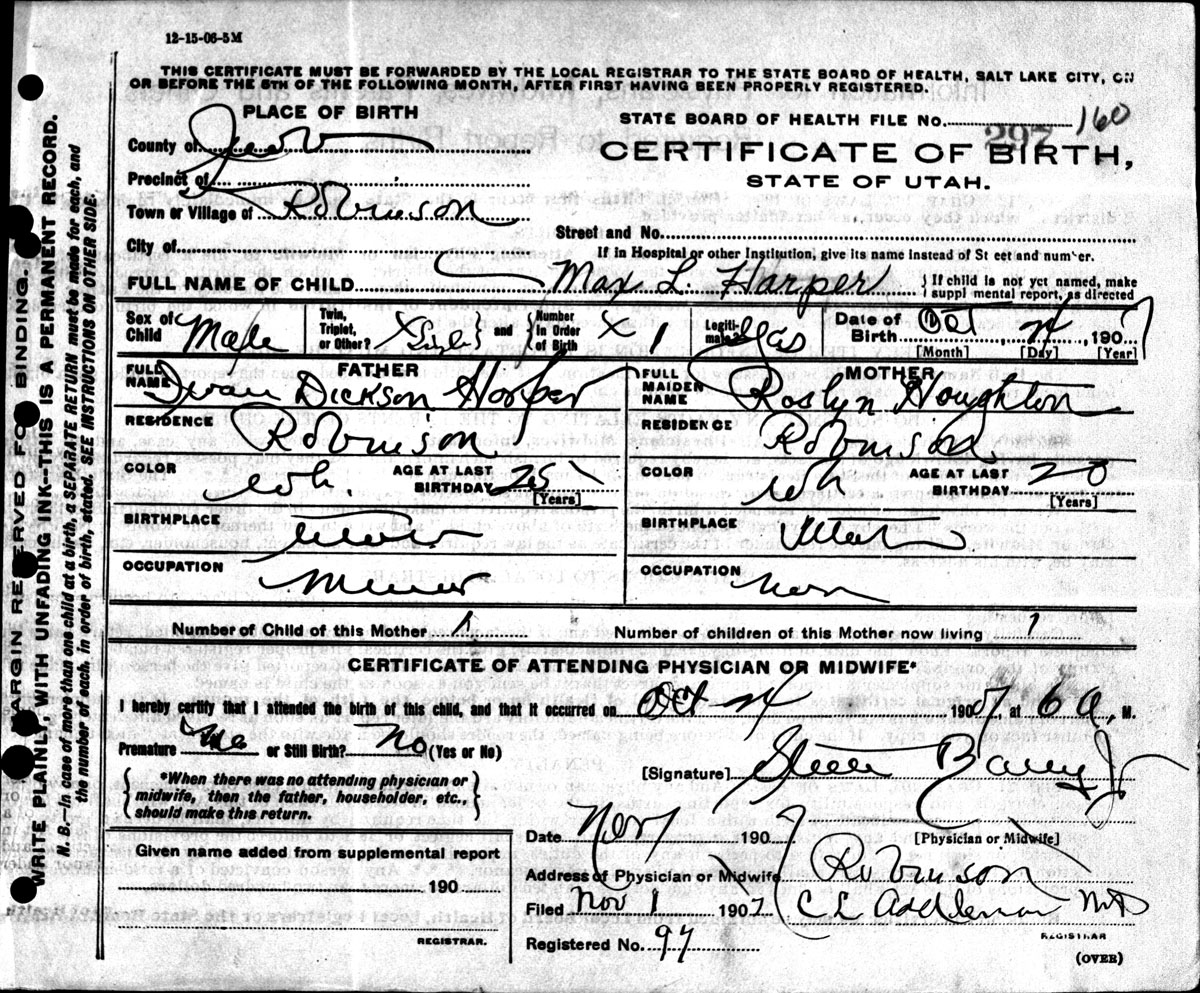 12-15-06-5M
THIS CERTIFICATE MUST BE FORWARDED BY THE LOCAL REGISTRAR TO THE STATE BOARD OF HEALTH, SALT LAKE CITY, ON
OR BEFORE THE 5TH OF THE FOLLOWING MONTH, AFTER FIRST HAVING BEEN PROPERLY REGISTERED.
PLACE OF BIRTH
STATE BOARD OF HEALTH FILE No. 297 160
County of Juab
CERTIFICATE OF BIRTH,
Precinct of
STATE OF UTAH.
Town or Village of Robinson
Street and No.
City of
If in Hospital or other Institution, give its name instead of St eet and num er.
FULL NAME OF CHILD Max L. Harper {If child is not yet named, make
suppl mental report, as directed
Sex of Child Male Twin, Triplet, or Other? Single and Number in Order of Birth 1 Legiti-mate? Yes Date of Birth Oct 24, 1907
[Month] [Day] [Year]
FATHER
FULL NAME Dickson Harper
RESIDENCE Robinson
COLOR wh. AGE AT LAST BIRTHDAY 25
[Years]
BIRTHPLACE
OCCUPATION Miner
MOTHER
FULL MAIDEN NAME Roslyn Houghton
RESIDENCE Robinson
COLOR wh AGE AT LAST BIRTHDAY 20
[Years]
BIRTHPLACE Utah
OCCUPATION
Number of Child of this Mother 1 Number of children of this Mother now living 1
CERTIFICATE OF ATTENDING PHYSICIAN OR MIDWIFE*
I hereby certify that I attended the birth of this child, and that it occurred on Oct 24 1907, at 6 a. M.
Premature No or Still Birth? No (Yes or No)
{*When there was no attending physician or
midwife, then the father, householder, etc.,
should make this return.}
[Signature] Steele Bailey Jr
[Physician or Midwife]
Date Nov 1907
Given name added from supplemental report
190
REGISTRAR.
Address of Physician or Midwife Robinson
Filed Nov 1 1907 M D
REGISTRAR
Registered No. 97
(OVER)
MARGIN RESERVED FOR BINDING.
WRITE PLAINLY, WITH UNFADING INK--THIS IS A PERMANENT RECORD.
N. B.--In case of more than one child at a birth, a SEPARATE RETURN must be made for each, and
the number of each, in order of birth, stated. SEE INSTRUCTIONS ON OTHER SIDE.